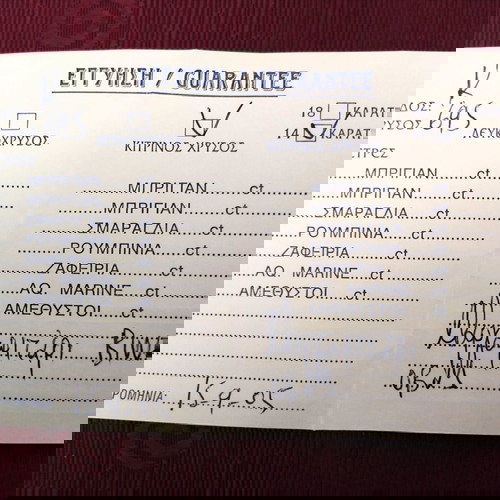 ΕΓΓΥΗΣΗ / GUARANTEE
18 ΚΑΡΑΤ
14 ΚΑΡΑΤ
ΚΙΤΡΙΝΟΣ ΧΡΥΣΟΣ
ΛΕΥΚΟΧΡΥΣΟΣ
ΔΟΣ
ΥΣΟΣ
ΤΡΕΣ
ΜΠΡΙΓΙΑΝ ct. ΜΠΡΙΓΙΑΝ ct.
ΜΠΡΙΓΙΑΝ ct. ΜΠΡΙΓΙΑΝ ct.
ΣΜΑΡΑΓΔΙΑ ct. ΣΜΑΡΑΓΔΙΑ ct.
ΡΟΥΜΠΙΝΙΑ ct. ΡΟΥΜΠΙΝΙΑ ct.
ΖΑΦΕΙΡΙΑ ct. ΖΑΦΕΙΡΙΑ ct.
ΑΟ. MARINE ct. ΑΟ. MARINE ct.
ΑΜΕΘΥΣΤΟΙ ct. ΑΜΕΘΥΣΤΟΙ ct.
ΡΟΜΗΝΙΑ: 15-9-05